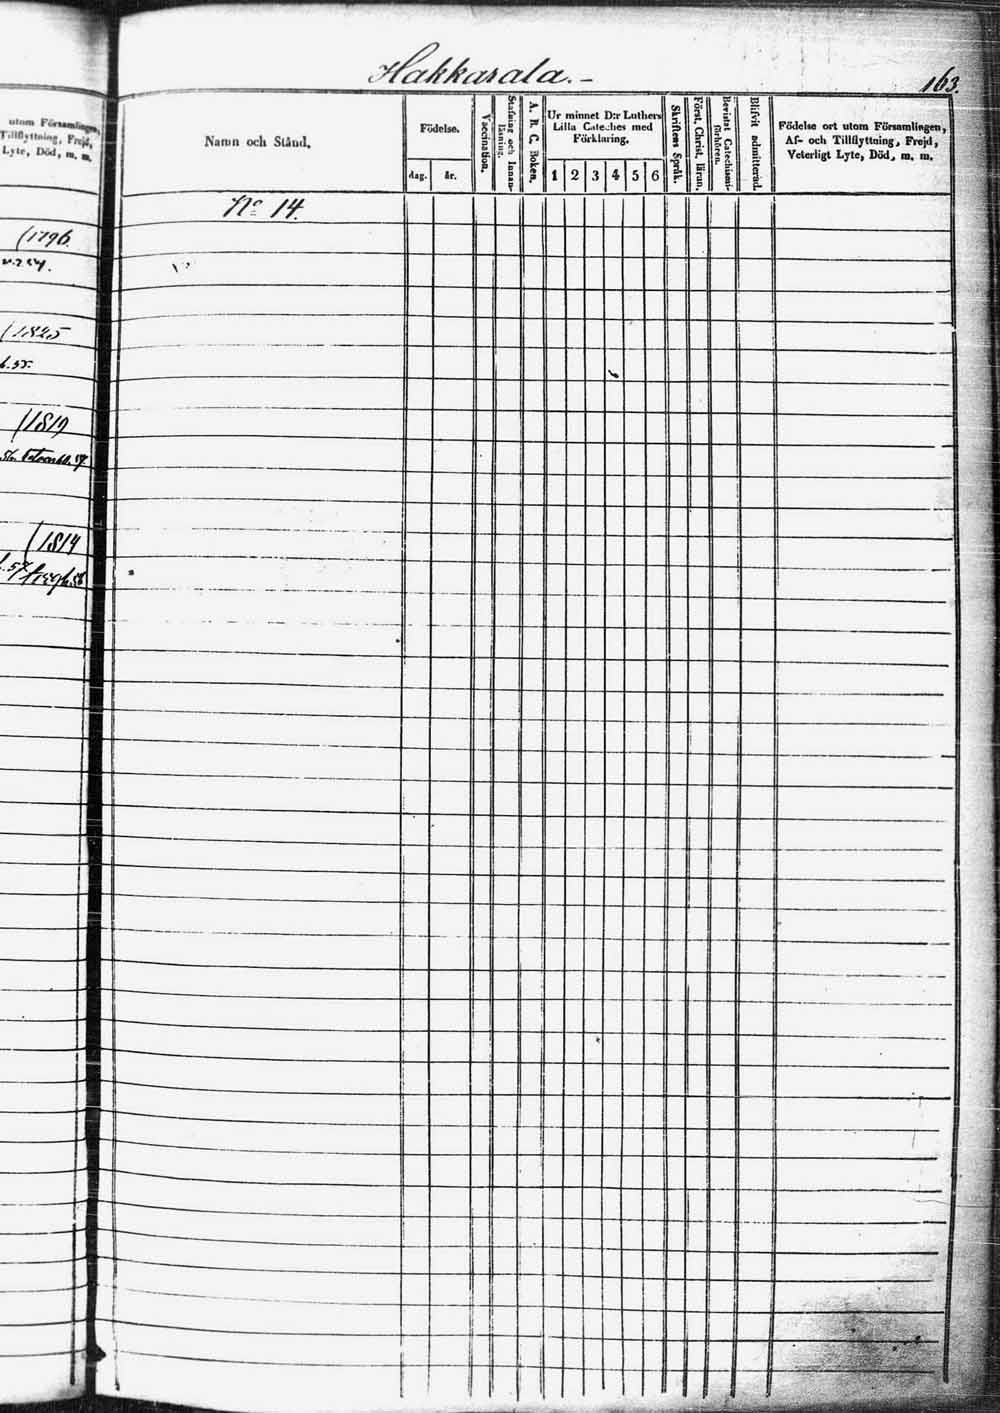 utom Församlingen,
Tillflyttning, Frejd,
Lyte, Död, m. m.
(1796.
(1825
(1819
(1814
Hakkarala.-
163.
Namn och Stånd.
Födelse.
dag.
år.
Vaccination.
Stafning och Innan-
läsning.
A. B. C. Boken.
Ur minnet D:r Luthers
Lilla Cateches med
Förklaring.
1 2 3 4 5 6
Skriftens Språk.
Först. Christ. läran.
Bevistat Catechismi-
förhören.
Blifvit admitterad.
Födelse ort utom Församlingen,
Af- och Tillflyttning, Frejd,
Veterligt Lyte, Död, m. m.
No 14.